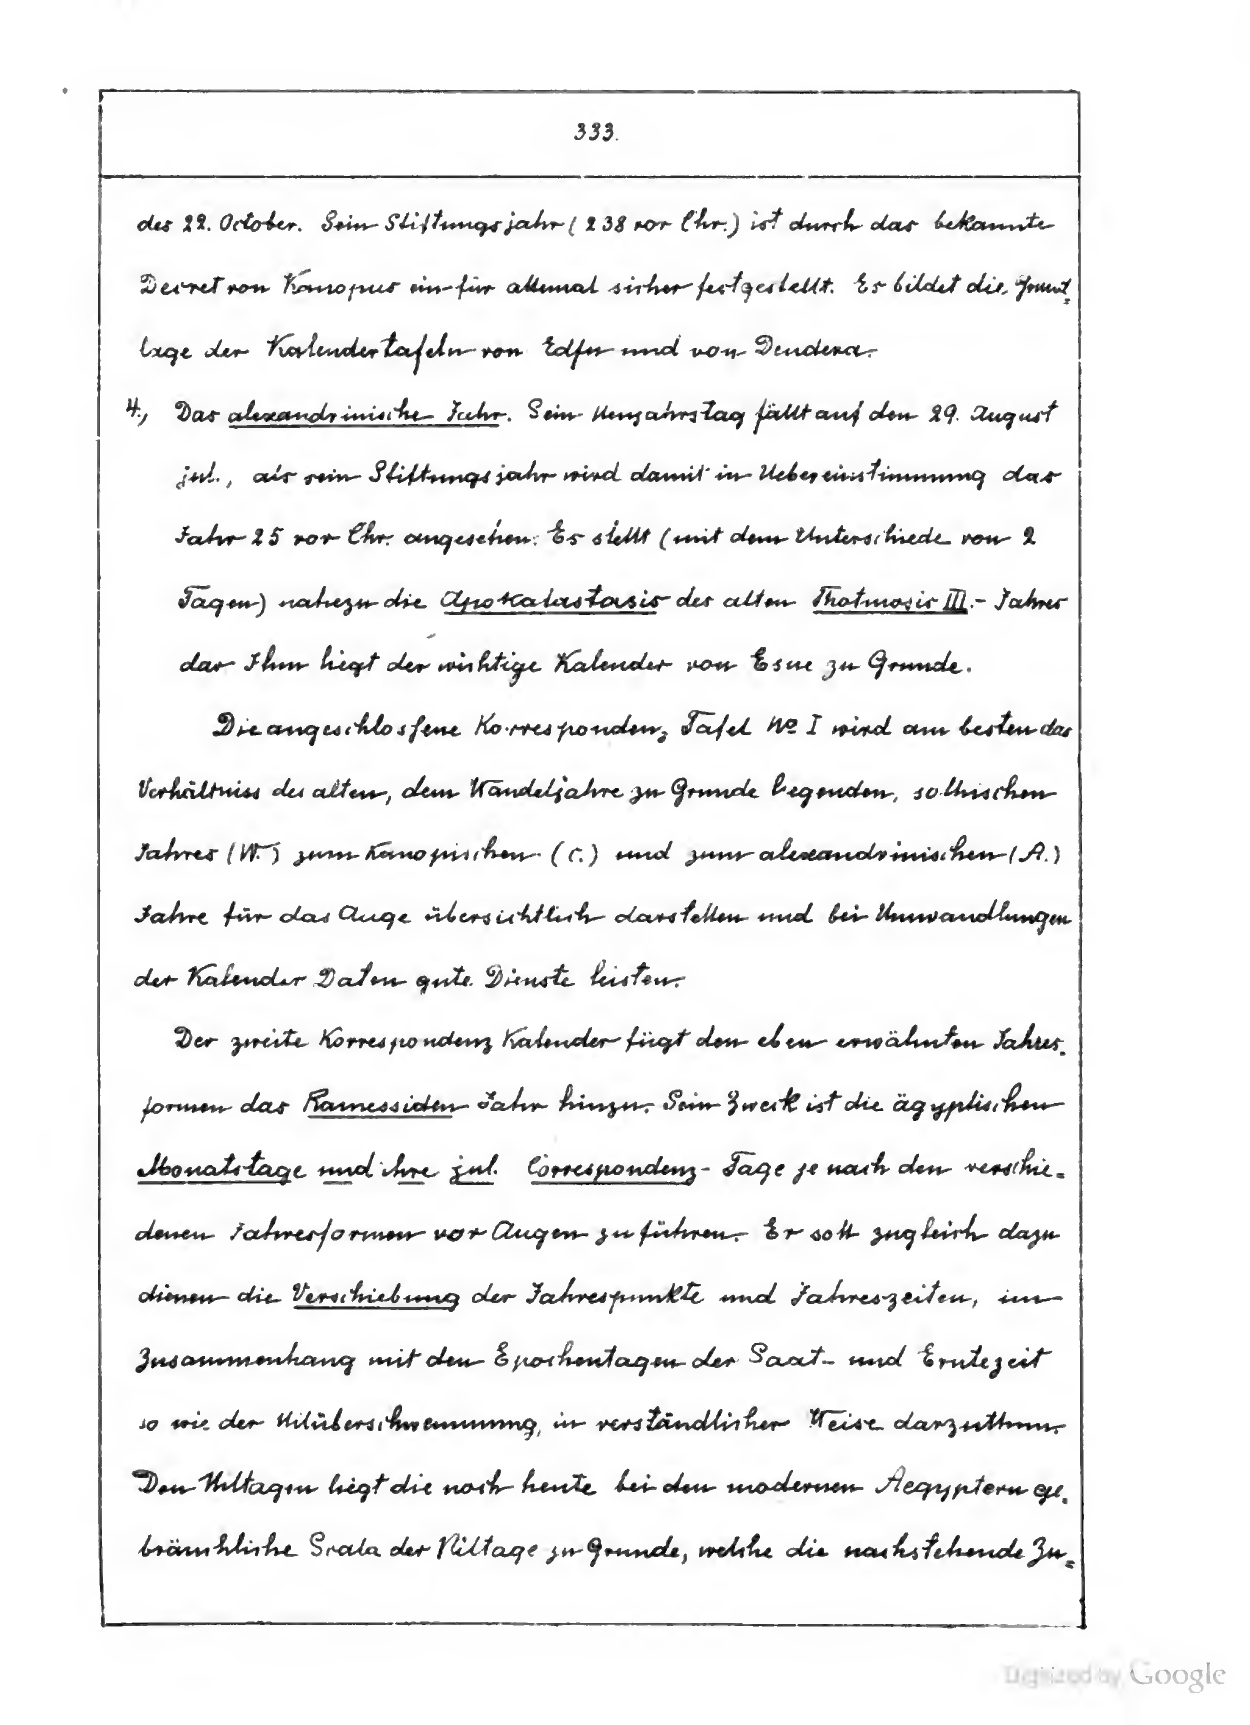 333.
des 22. October. Sein Stiftungsjahr (238 vor Chr.) ist durch das bekannte
Decret von Kanopus ein für allemal sicher festgestellt. Es bildet die Grund=
lage der Kalendertafeln von Edfu und von Dendera.
4., Das alexandrinische Jahr. Sein Neujahrstag fällt auf den 29. August
jul., als sein Stiftungsjahr wird damit in Uebereinstimmung das
Jahr 25 vor Chr. angesehen. Es stellt (mit dem Unterschiede von 2
Tagen) nahezu die Apokatastasis des alten Thotmosis III.- Jahres
dar Ihm liegt der wichtige Kalender von Esne zu Grunde.
Die angeschlossene Korrespondenz Tafel No I wird am besten das
Verhältniss des alten, dem Wandeljahre zu Grunde liegenden, sothischen
Jahres (W.) zum Kanopischen (C.) und zum alexandrinischen (A.)
Jahre für das Auge übersichtlich darstellen und bei Umwandlungen
der Kalender Daten gute Dienste leisten.
Der zweite Korrespondenz Kalender fügt den eben erwähnten Jahres=
formen das Ramessiden Jahr hinzu. Sein Zweck ist die ägyptischen
Monatstage und ihre jul. Correspondenz- Tage je nach den verschie=
denen Jahresformen vor Augen zu führen. Er soll zugleich dazu
dienen die Verschiebung der Jahrespunkte und Jahreszeiten, im
Zusammenhang mit den Epochentagen der Saat- und Erntezeit
so wie der Nilüberschwemmung, in verständlicher Weise darzuthun.
Den Niltagen liegt die noch heute bei den modernen Aegyptern ge=
bräuchliche Scala der Niltage zu Grunde, welche die nachstehende Zu=
Digitized by Google